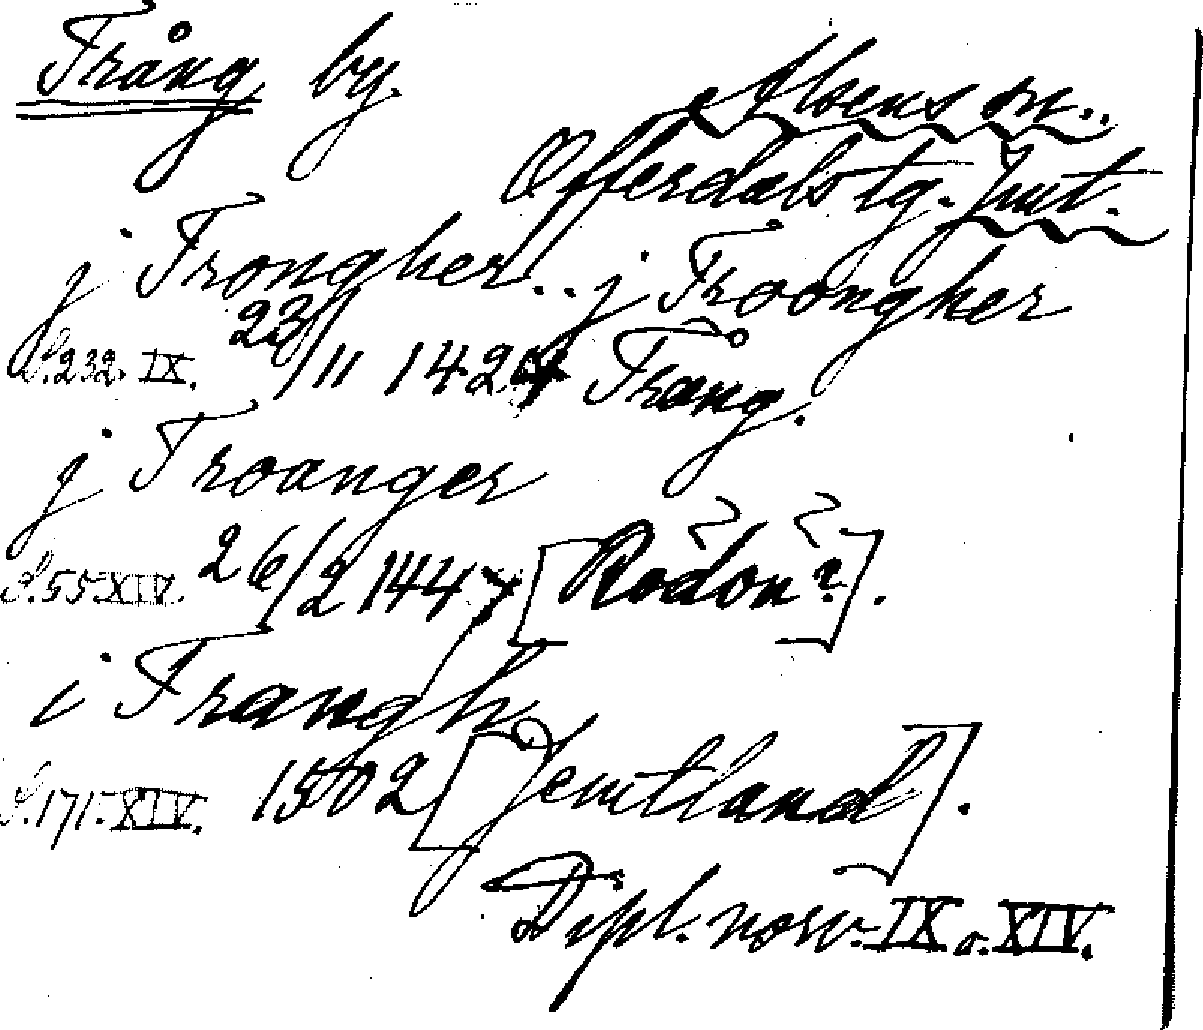 Trång by.
Alsens sn..
Offerdals tg. Jmt.
j Trongher.. j Troongher
S. 232. IX. 23/11 142 Trång.
j Troanger
S. 55 XIV. 26/2 144 [Rödön?].
i Trangh
S. 171. XIV. 1502 [Jemtland].
Dipl. norv. IX o. XIV.